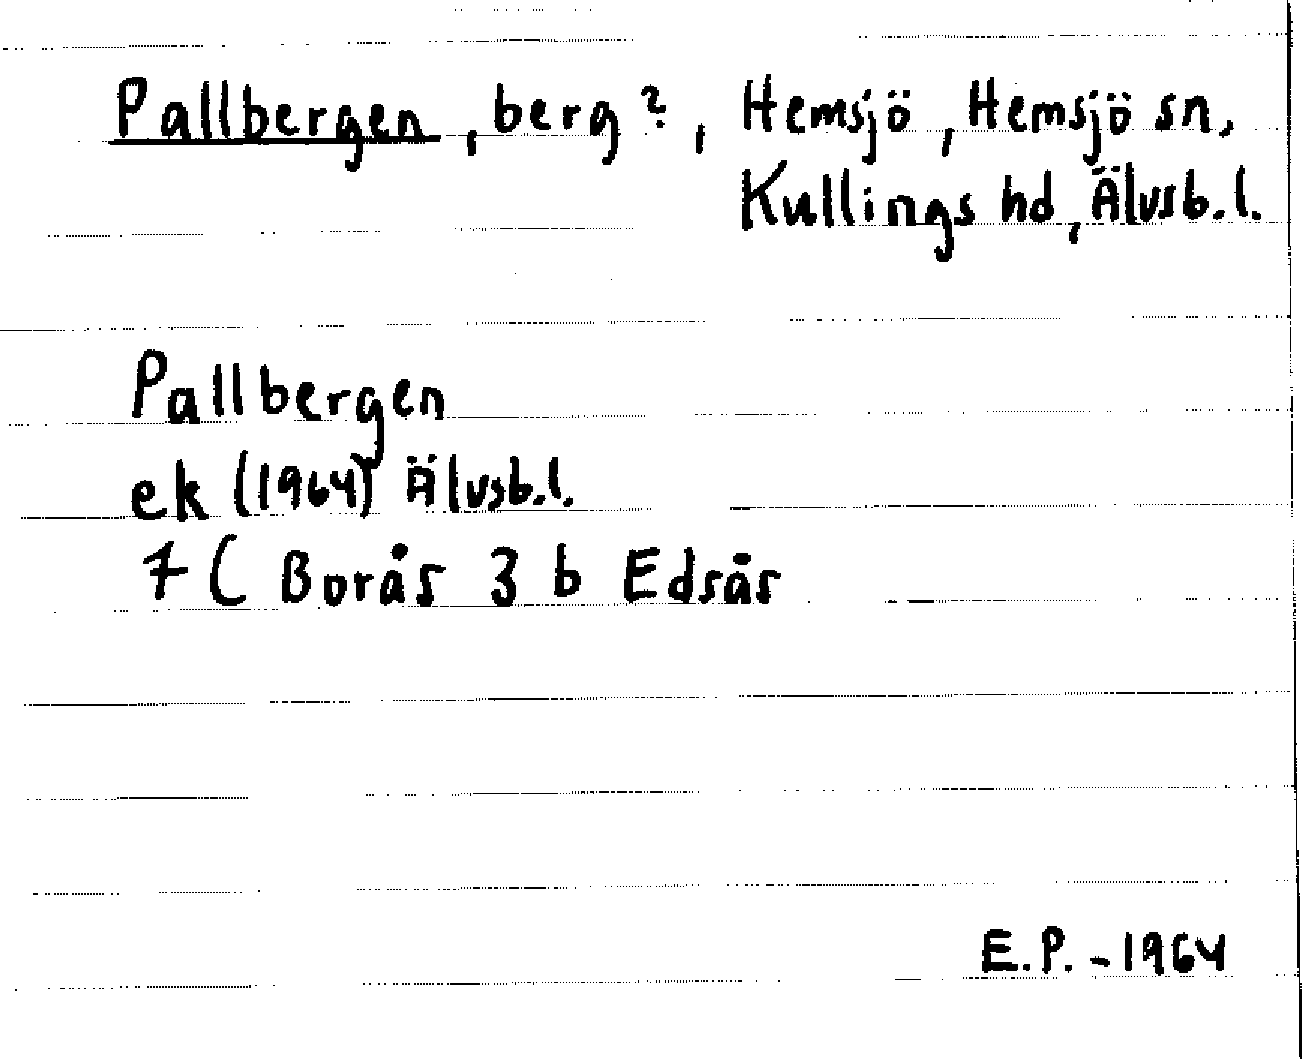 Pallbergen, berg?, Hemsjö, Hemsjö sn,
Kullings hd, Älvsb.l.
Pallbergen
ek (1964) Älvsb.l.
7C Borås 3 b Edsås
E.P. - 1964